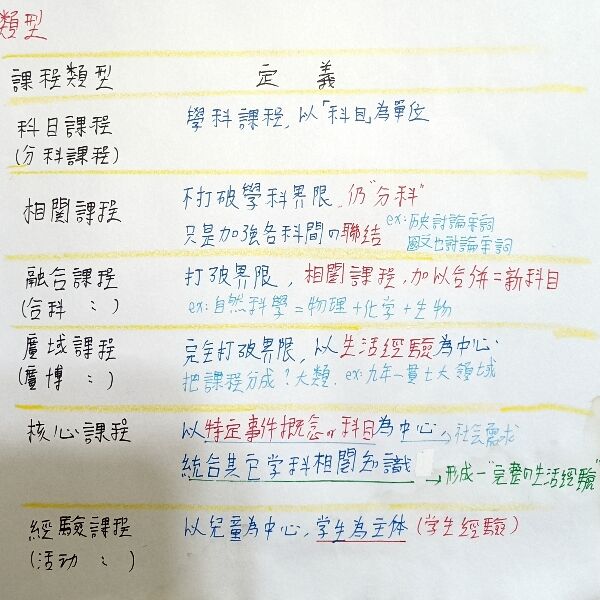 類型
課程類型 定義
科目課程 學科課程,以「科目」為單位
(分科課程)
相關課程 不打破學科界限,仍"分科"
只是加強各科間の聯結 ex:历史討論宋詞
國文也討論宋詞
融合課程 打破界限,相關課程,加以合併=新科目
(合科〃) ex:自然科學=物理+化学+生物
廣域課程 完全打破界限,以生活經驗為中心.
(廣博〃) 把課程分成?大類. ex:九年一貫七大領域
核心課程 以特定事件概念の科目為中心→社会需求
統合其它学科相關知識 →形成一"完整の生活經驗"
經驗課程 以兒童為中心,学生為主体(学生經驗)
(活动〃)